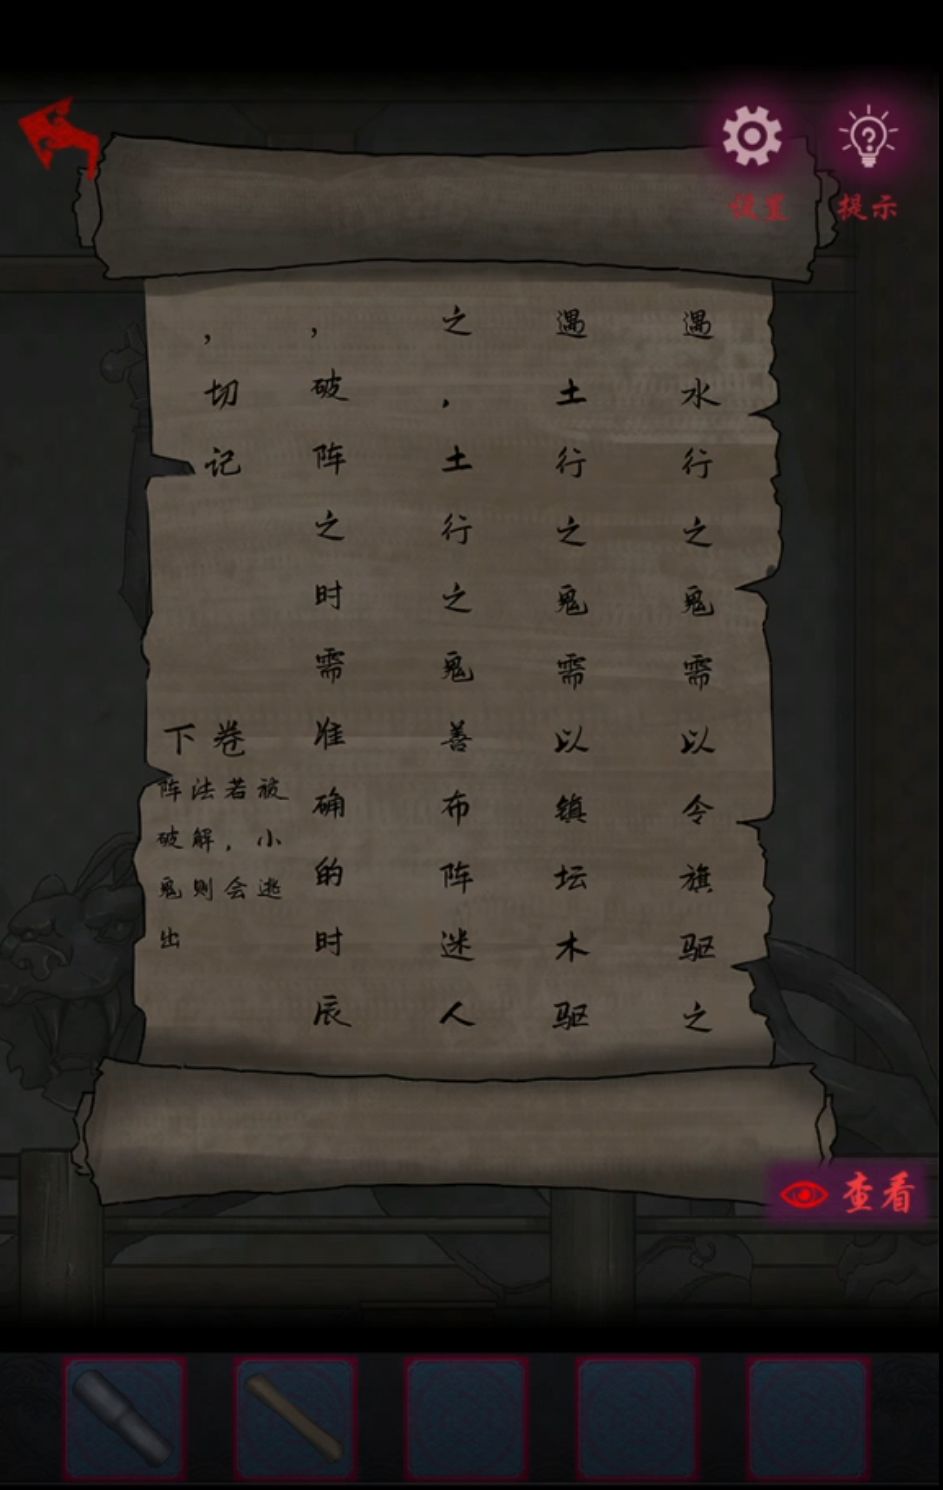 设置
提示
遇水行之鬼需以令旗驱之
遇土行之鬼需以镇坛木驱
之，土行之鬼善布阵迷人
，破阵之时需准确的时辰
，切记
下卷
阵法若被
破解，小
鬼则会逃
出
查看